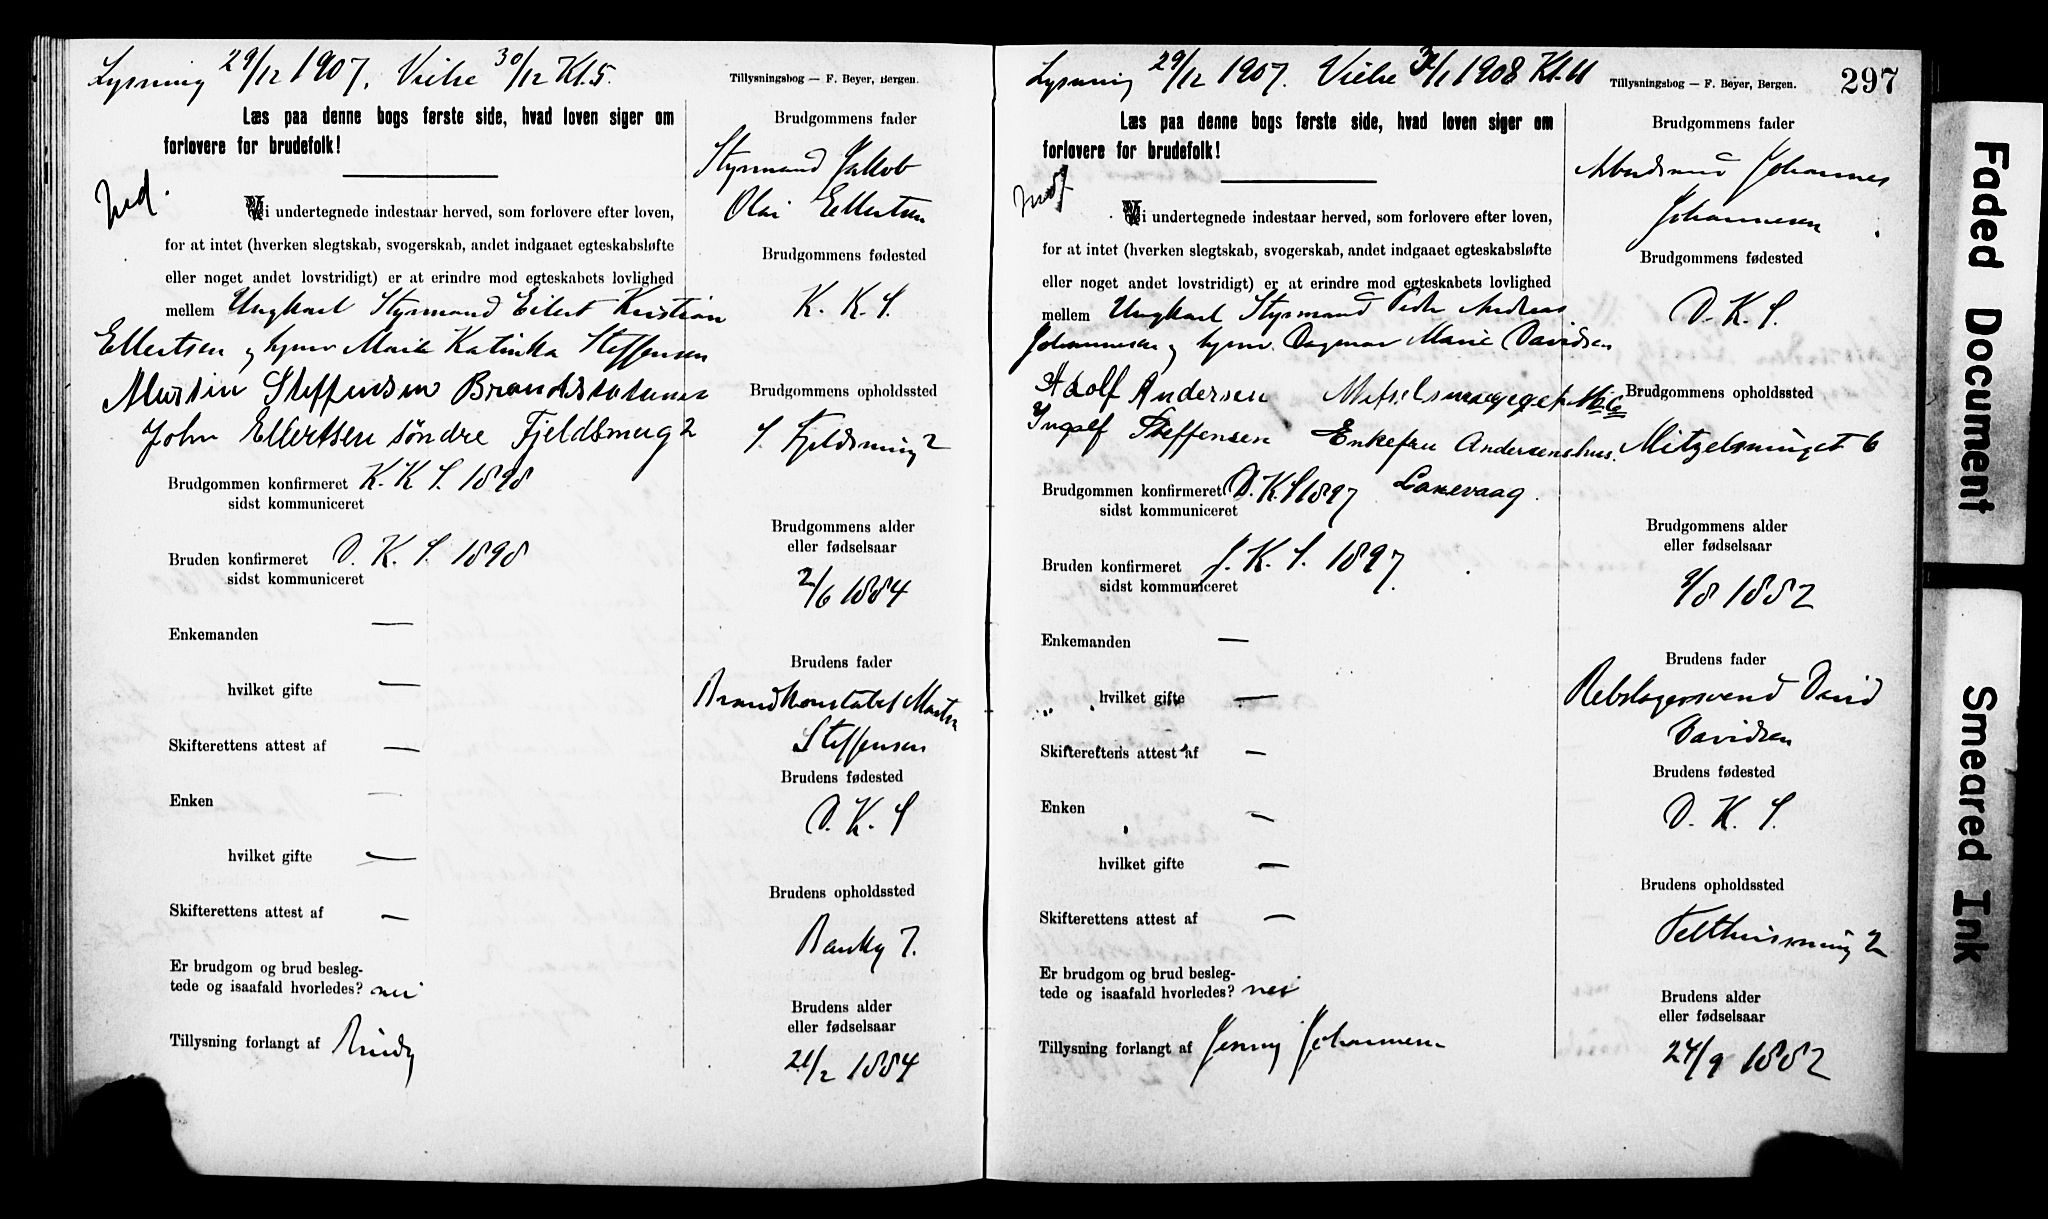 Lysning 29/12 1907. Vielse 30/12 Kl. 5.
Tillysningsbog — F. Beyer, Bergen.
Læs paa denne bogs første side, hvad loven siger om
forlovere for brudefolk!
Vi undertegnede indestaar herved, som forlovere efter loven,
for at intet (hverken slegtskab, svogerskab, andet indgaaet egteskabsløfte
eller noget andet lovstridigt) er at erindre mod egteskabets lovlighed
mellem Ungkarl Styrmand Eilert Kristian
Ellertsen og Marie Katinka Steffensen
Martin Steffensen
John Ellertsen søndre Fjeldsmug 2
Brudgommen konfirmeret K. K. S. 1898
sidst kommuniceret
Bruden konfirmeret D. K. S. 1898
sidst kommuniceret
Enkemanden —
hvilket gifte —
Skifterettens attest af —
Enken —
hvilket gifte —
Skifterettens attest af —
Er brudgom og brud besleg-
tede og isaafald hvorledes? nei
Tillysning forlangt af
Brudgommens fader
Styrmand Jakob
Olai Ellertsen
Brudgommens fødested
K. K. S.
Brudgommens opholdssted
S. Fjeldsmug 2
Brudgommens alder
eller fødselsaar
2/6 1884
Brudens fader
Brandkonstabel Martin
Steffensen
Brudens fødested
D. K. S
Brudens opholdssted
7.
Brudens alder
eller fødselsaar
21/2 1884
Lysning 29/12 1907. Vielse 1908 Kl. 11
Tillysningsbog — F. Beyer, Bergen.
297
Læs paa denne bogs første side, hvad loven siger om
forlovere for brudefolk!
Vi undertegnede indestaar herved, som forlovere efter loven,
for at intet (hverken slegtskab, svogerskab, andet indgaaet egteskabsløfte
eller noget andet lovstridigt) er at erindre mod egteskabets lovlighed
mellem Ungkarl Styrmand Peder Andreas
Johannesen og Dagmar Marie Davidsen
Adolf Andersen
Ingolf Steffensen Enkefru Andersens hus.
Laxevaag.
Brudgommen konfirmeret D. K. S 1897
sidst kommuniceret
Bruden konfirmeret J. K. S. 1897.
sidst kommuniceret
Enkemanden —
hvilket gifte —
Skifterettens attest af —
Enken —
hvilket gifte —
Skifterettens attest af —
Er brudgom og brud besleg-
tede og isaafald hvorledes? nei
Tillysning forlangt af Jenny Johannesen
Brudgommens fader
Arbeidsmand Johannes
Johannesen
Brudgommens fødested
D. K. S.
Brudgommens opholdssted
Mitzelsmuget 6
Brudgommens alder
eller fødselsaar
9/8 1882
Brudens fader
Rebslagersvend David
Davidsen
Brudens fødested
D. K. S.
Brudens opholdssted
Telthussmug 2
Brudens alder
eller fødselsaar
24/9 1882
Faded Document
Smeared Ink